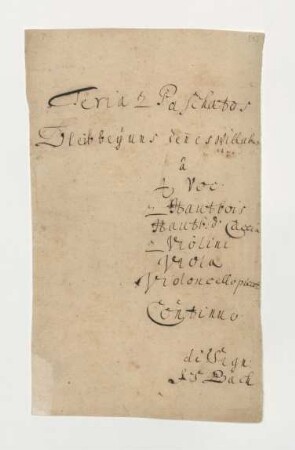 Feria 2 Paschatos
Bleib bey uns denn es will ab
à
4 Voc.
2 Hautbois
Hautb: d' Caccia
2 Violini
Viola
Violoncello picc:
Continuo
di Sign
J S Bach